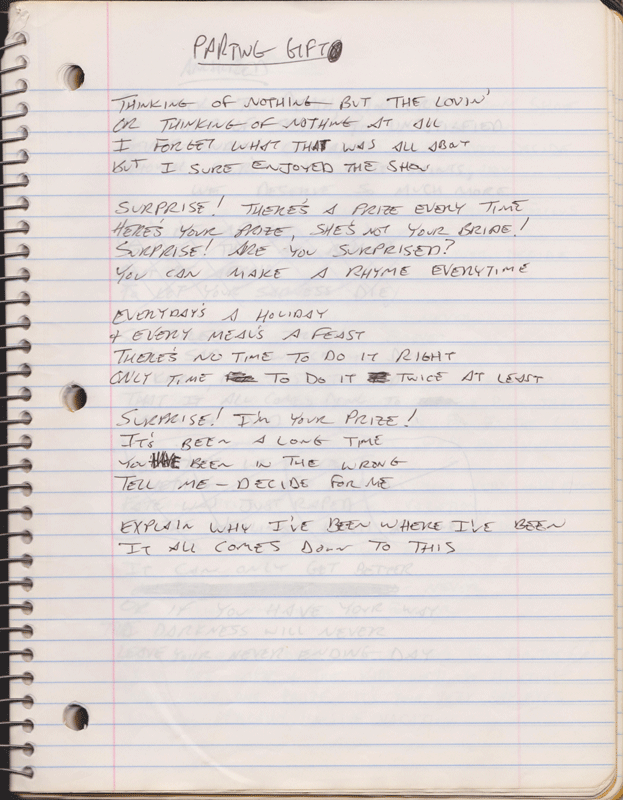 PARTING GIFT
THINKING OF NOTHING BUT THE LOVIN'
OR THINKING OF NOTHING AT ALL
I FORGET WHAT THAT WAS ALL ABOUT
BUT I SURE ENJOYED THE SHOW
SURPRISE! THERE'S A PRIZE EVERY TIME
HERE'S YOUR PRIZE, SHE'S NOT YOUR BRIDE!
SURPRISE! ARE YOU SURPRISED?
YOU CAN MAKE A RHYME EVERYTIME
EVERYDAY'S A HOLIDAY
+ EVERY MEAL'S A FEAST
THERE'S NO TIME TO DO IT RIGHT
ONLY TIME TO DO IT TWICE AT LEAST
SURPRISE! I'M YOUR PRIZE!
IT'S BEEN A LONG TIME
YOU HAVE BEEN IN THE WRONG
TELL ME - DECIDE FOR ME
EXPLAIN WHY I'VE BEEN WHERE I'VE BEEN
IT ALL COMES DOWN TO THIS
IT CAN ONLY GET BETTER
OR IF YOU HAVE YOUR WAY
DARKNESS WILL NEVER
LEAVE YOUR NEVER ENDING DAY